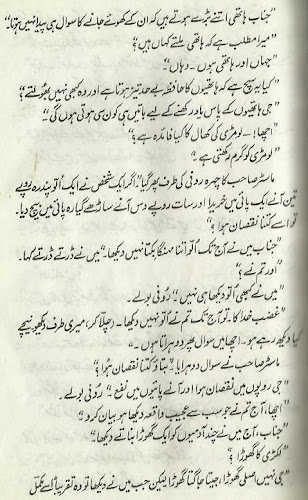 "جناب ہاتھی اتنے بڑے ہوتے ہیں کہ ان کے کھوئے جانے کا سوال ہی پیدا نہیں ہوتا۔"
"میرا مطلب ہے کہ ہاتھی ملتے کہاں ہیں؟"
"جہاں اور ہاتھی ہوں۔ وہاں۔"
"کیا یہ سچ ہے کہ ہاتھیوں کا حافظہ بے حد تیز ہوتا ہے اور وہ کبھی نہیں بھولتے؟"
"جی ہاتھیوں کے پاس یاد رکھنے کے لیے باتیں ہی کون سی ہوتی ہوں گی۔"
"اچھا!۔ لومڑی کی کھال کا کیا فائدہ ہے؟"
"لومڑی کو گرم رکھتی ہے۔"
ماسٹر صاحب کا چہرہ روفی کی طرف پھر گیا۔ "اگر ایک شخص نے ایک الّو پندرہ روپے
تین آنے ایک پائی میں خریدا اور سات روپے دس آنے ساڑھے گیارہ پائی میں بیچ دیا۔
تو اسے کتنا نقصان ہوا؟"
"جناب میں نے آج تک الّو اتنا مہنگا بکتا نہیں دیکھا۔" میں نے ڈرتے ڈرتے کہا۔
"اور تم نے؟"
"میں نے کبھی الّو دیکھا ہی نہیں۔" روفی بولے۔
"غضب خدا کا۔ تو آج تک تم نے الّو نہیں دیکھا۔ (چلّا کر) میری طرف دیکھو نیچے
کیا دیکھ رہے ہو۔ اچھا میں سوال پھر دوہراتا ہوں۔"
ماسٹر صاحب نے سوال دوہرایا۔ "بتاؤ کتنا نقصان ہوا؟"
"جی روپوں میں نقصان ہوا اور آنے پائیوں میں نفع۔" روفی بولے۔
"اچھا، آج تم نے جو سب سے عجیب واقعہ دیکھا ہو بیان کرو۔"
"جناب، آج میں نے چند آدمیوں کو ایک گھوڑا بناتے دیکھا۔"
"لکڑی کا گھوڑا؟"
"جی نہیں، اصلی گھوڑا، جیتا جاگتا گھوڑا لیکن جب میں نے دیکھا تو وہ تقریباً اسے مکمل